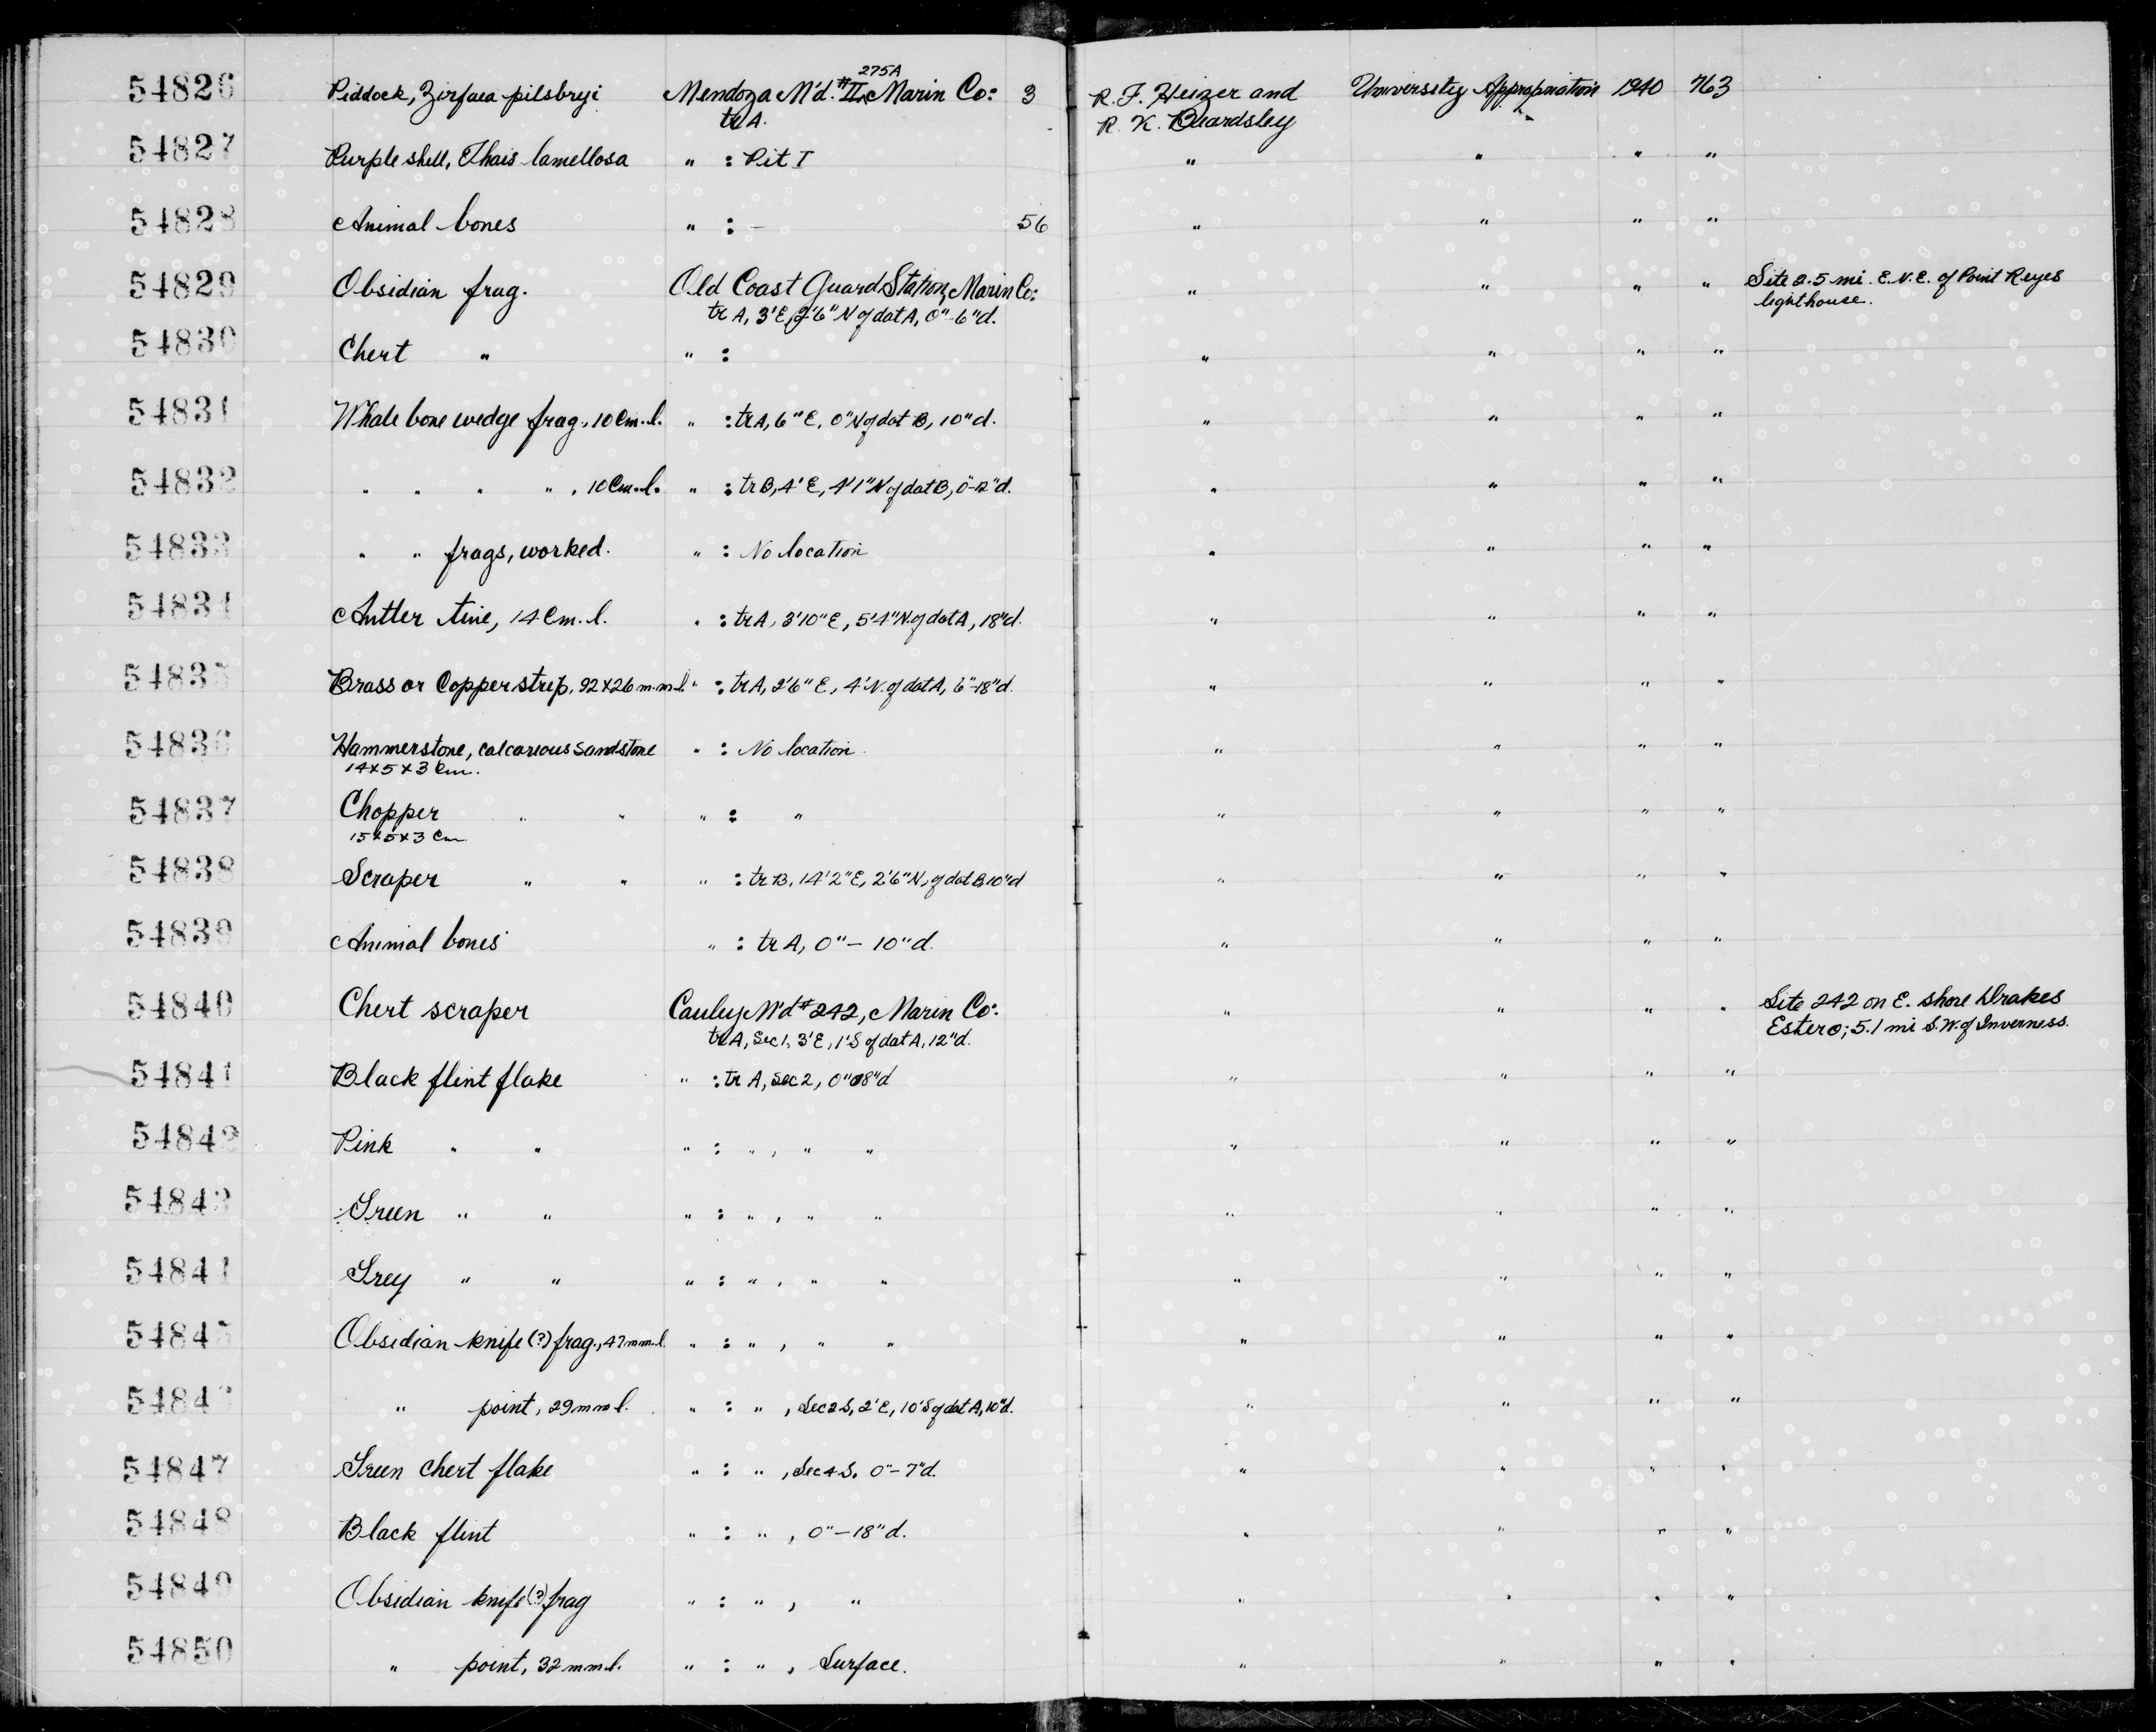 54826 Piddock, Zirfaea pilsbryi Mendoza M'd. #II, 275A Marin Co: 3 R. F. Heizer and University Appropriation 1940 763
trA. R. K. Beardsley
54827 Purple shell, Thais lamellosa " : Pit I " " " "
54828 Animal bones " : - 56 " " " "
54829 Obsidian frag. Old Coast Guard Station, Marin Co: " " " " Site 2.5 mi. E.N.E. of Point Reyes
tr A, 3'E, 2'6" N of dat A, 0"-6"d. lighthouse.
54830 Chert " " : " " " "
54831 Whale bone wedge frag., 10 Cm. l. " : tr A, 6" E, 0" N of dat B, 10"d. " " " "
54832 " " " " , 10 Cm. l. " : tr B, 4' E, 4'1" N of dat B, 0-12"d. " " " "
54833 " " frags, worked. " : No location " " " "
54834 Antler tine, 14 Cm. l. " : tr A, 3'10" E, 5'4" N. of dat A, 18"d. " " " "
54835 Brass or Copper strip, 92 x 26 m.m l. " : tr A, 2'6" E, 4' N. of dat A, 6"-18"d. " " " "
54836 Hammerstone, calcareous sandstone " : No location. " " " "
14 x 5 x 3 Cm.
54837 Chopper " " " : " " " " "
15 x 5 x 3 Cm
54838 Scraper " " " : tr B, 14'2" E, 2'6" N, of dat B, 10"d " " " "
54839 Animal bones " : tr A, 0" - 10"d. " " " "
54840 Chert scraper Cauley M'd # 242, Marin Co: " " " " Site 242 on E. shore Drakes
trA, Sec 1, 3'E, 1'S of dat A, 12"d. Estero; 5.1 mi S.W. of Inverness.
54841 Black flint flake " : tr A, Sec 2, 0" 18"d " " " "
54842 Pink " " " : " , " " " " " "
54843 Green " " " : " , " " " " " "
54844 Grey " " " : " , " " " " " "
54845 Obsidian knife (?) frag., 47 mm. l. " : " , " " " " " "
54846 " point, 29 mm l. " : " , Sec 2 S, 2' E, 10' S of dat A, 10"d. " " " "
54847 Green chert flake " : " , Sec 4 S. 0"- 7"d. " " " "
54848 Black flint " : " , 0" - 18" d. " " " "
54849 Obsidian knife (?) frag " : " , " " " " "
54850 " point, 32 mm l. " : " , Surface. " " " "